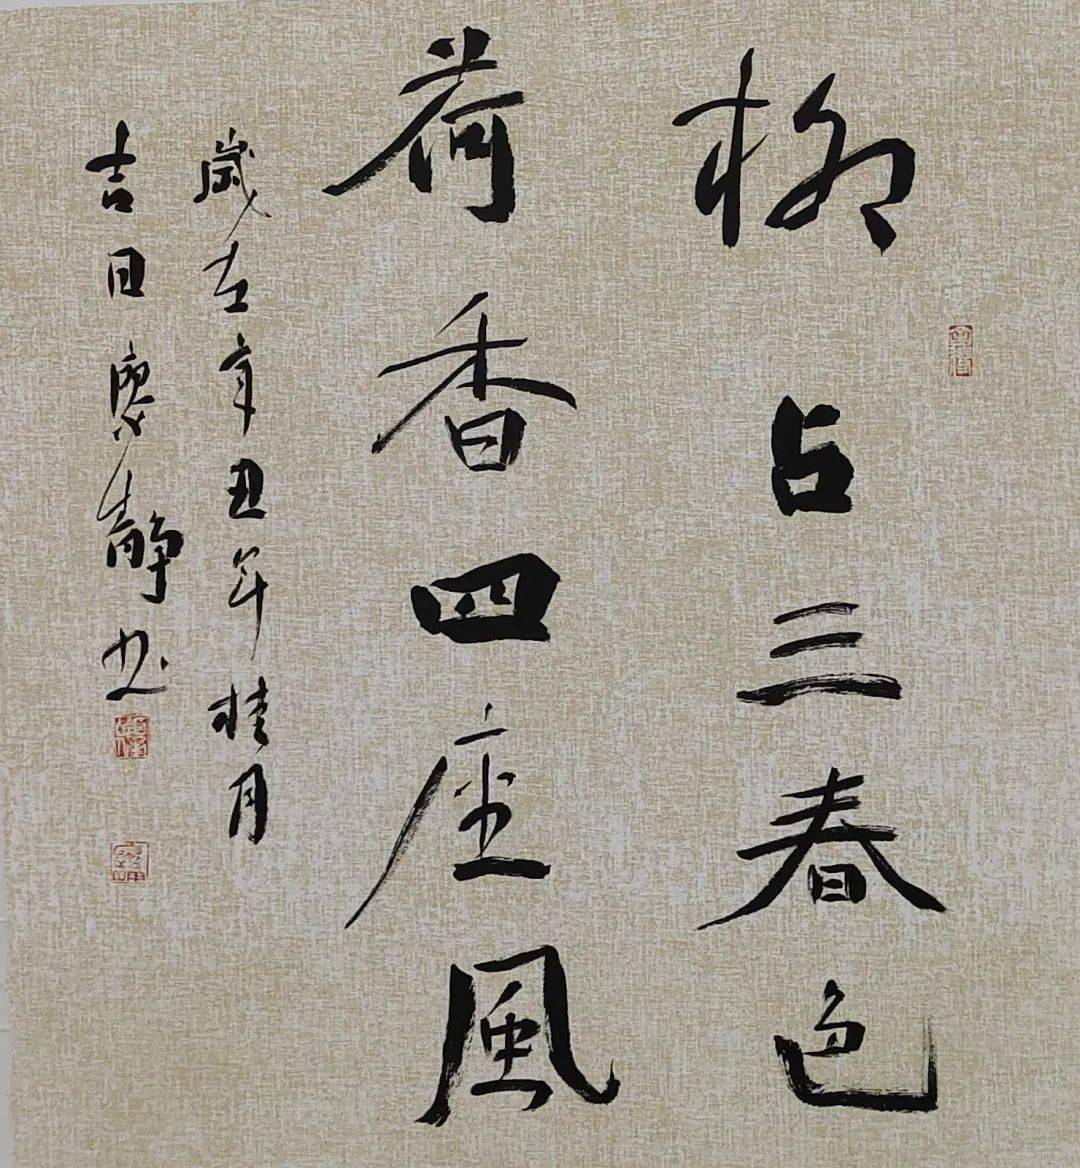 柳占三春色
荷香四座風
歲在辛丑年桂月
吉日慶靜书